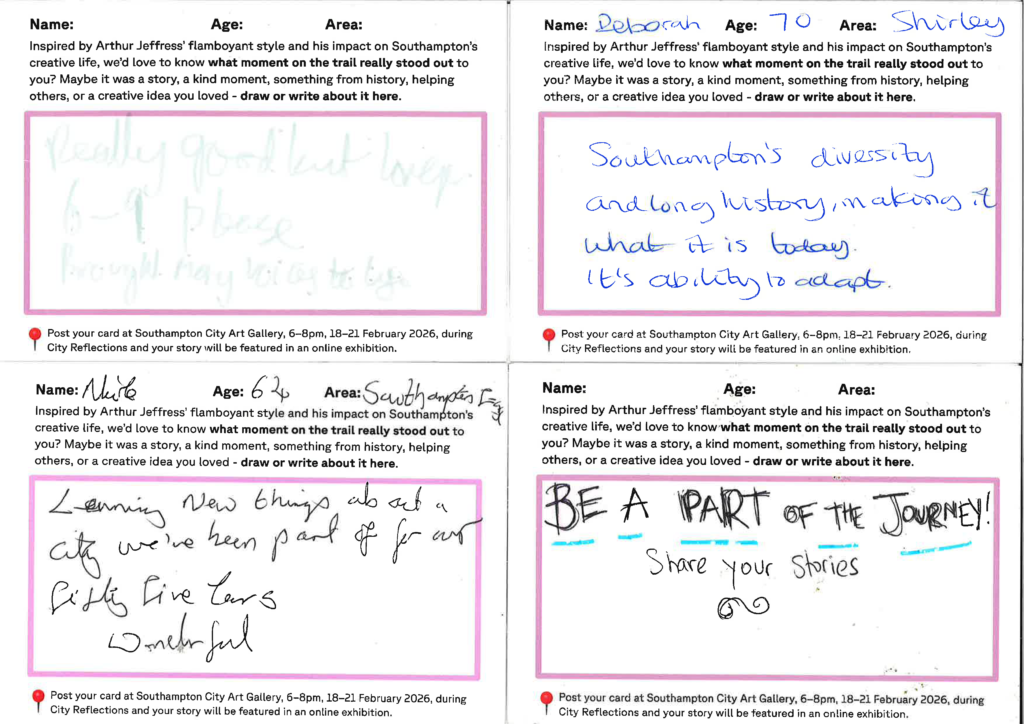 Name: Age: Area:
Inspired by Arthur Jeffress' flamboyant style and his impact on Southampton's
creative life, we'd love to know what moment on the trail really stood out to
you? Maybe it was a story, a kind moment, something from history, helping
others, or a creative idea you loved - draw or write about it here.
Really good but longer
6-9 please
Brought many voices to life
Post your card at Southampton City Art Gallery, 6–8pm, 18–21 February 2026, during
City Reflections and your story will be featured in an online exhibition.
Name: Deborah Age: 70 Area: Shirley
Inspired by Arthur Jeffress' flamboyant style and his impact on Southampton's
creative life, we'd love to know what moment on the trail really stood out to
you? Maybe it was a story, a kind moment, something from history, helping
others, or a creative idea you loved - draw or write about it here.
Southampton's diversity
and long history, making it
what it is today.
It's ability to adapt.
Post your card at Southampton City Art Gallery, 6–8pm, 18–21 February 2026, during
City Reflections and your story will be featured in an online exhibition.
Name: Age: 64 Area: Southampton
Inspired by Arthur Jeffress' flamboyant style and his impact on Southampton's
creative life, we'd love to know what moment on the trail really stood out to
you? Maybe it was a story, a kind moment, something from history, helping
others, or a creative idea you loved - draw or write about it here.
Learning New things about a
city we've been part of for over
fifty five years
Wonderful
Post your card at Southampton City Art Gallery, 6–8pm, 18–21 February 2026, during
City Reflections and your story will be featured in an online exhibition.
Name: Age: Area:
Inspired by Arthur Jeffress' flamboyant style and his impact on Southampton's
creative life, we'd love to know what moment on the trail really stood out to
you? Maybe it was a story, a kind moment, something from history, helping
others, or a creative idea you loved - draw or write about it here.
BE A PART OF THE JOURNEY!
Share your stories
Post your card at Southampton City Art Gallery, 6–8pm, 18–21 February 2026, during
City Reflections and your story will be featured in an online exhibition.